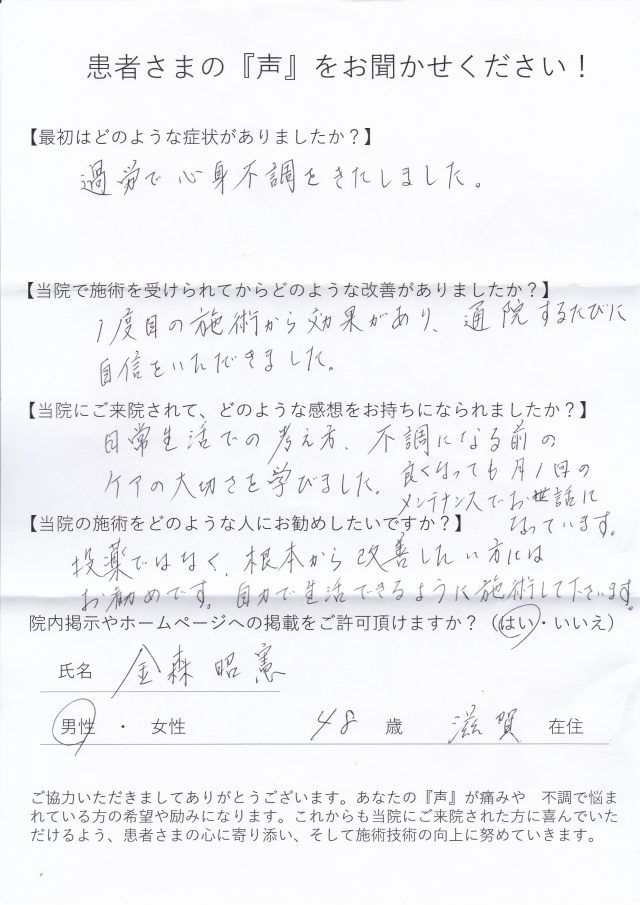 患者さまの『声』をお聞かせください！
【最初はどのような症状がありましたか？】
過労で心身不調をきたしました。
【当院で施術を受けられてからどのような改善がありましたか？】
1度目の施術から効果があり、通院するたびに
自信をいただきました。
【当院にご来院されて、どのような感想をお持ちになられましたか？】
日常生活での考え方、不調になる前の
ケアの大切さを学びました。良くなっても月1回の
メンテナンスでお世話に
なっています。
【当院の施術をどのような人にお勧めしたいですか？】
投薬ではなく、根本から改善したい方には
お勧めです。自力で生活できるように施術して下さいます。
院内掲示やホームページへの掲載をご許可頂けますか？（はい・いいえ）
氏名 金森 昭憲
男性 ・ 女性 48 歳 滋賀 在住
ご協力いただきましてありがとうございます。あなたの『声』が痛みや 不調で悩ま
れている方の希望や励みになります。これからも当院にご来院された方に喜んでいた
だけるよう、患者さまの心に寄り添い、そして施術技術の向上に努めていきます。